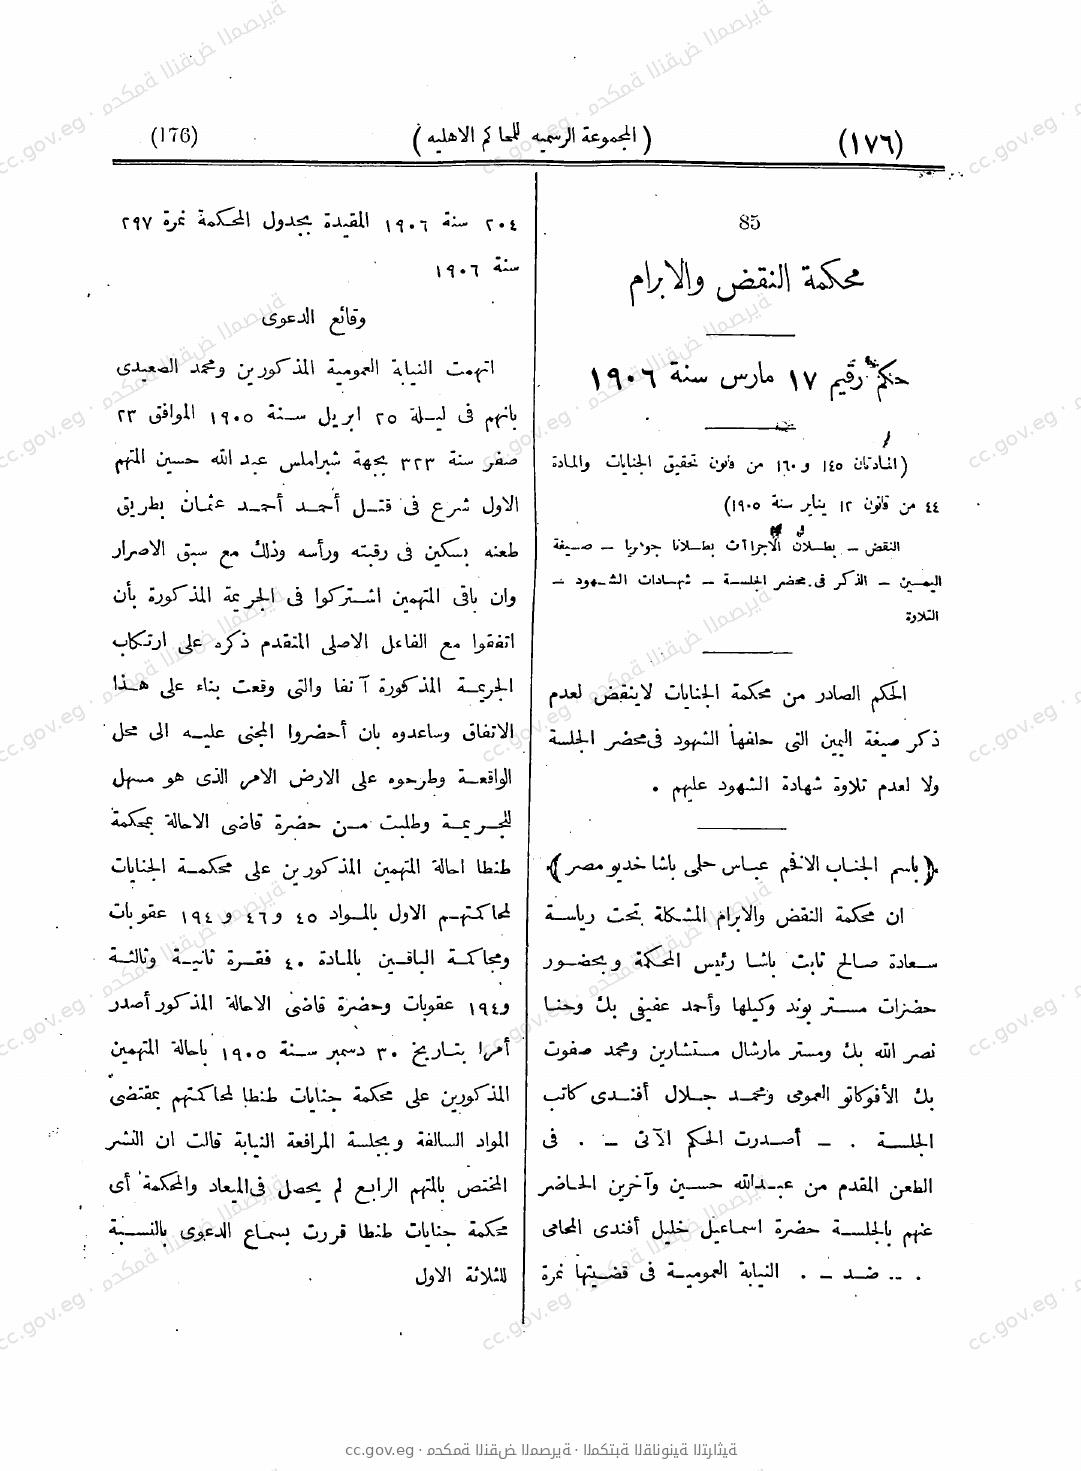 (١٧٦)
( المجموعة الرسميه للمحاكم الاهليه )
(176)
85
محكمة النقض والابرام
حكم رقيم ١٧ مارس سنة ١٩٠٦
(المادتان ١٤٥ و ١٦٠ من قانون تحقيق الجنايات والمادة
٤٤ من قانون ١٢ يناير سنة ١٩٠٥)
النقض – بطلان الاجراآت بطلانا جوهريا – صيغة
اليمين – الذكر فى محضر الجلسة – شهادات الشهود –
التلاوة
الحكم الصادر من محكمة الجنايات لاينقض لعدم
ذكر صيغة اليمين التى حلفها الشهود فى محضر الجلسة
ولا لعدم تلاوة شهادة الشهود عليهم .
(باسم الجناب الافخم عباس حلمى باشا خديو مصر)
ان محكمة النقض والابرام المشكلة تحت رياسة
سعادة صالح ثابت باشا رئيس المحكمة وبحضور
حضرات مستر بوند وكيلها وأحمد عفيفى بك وحنا
نصر الله بك ومستر مارشال مستشارين ومحمد صفوت
بك الأفوكاتو العمومى ومحمد جلال أفندى كاتب
الجلسة . – أصدرت الحكم الآتى – . فى
الطعن المقدم من عبدالله حسين وآخرين الحاضر
عنهم بالجلسة حضرة اسماعيل خليل أفندى المحامى
. – ضد – . النيابة العمومية فى قضيتها نمرة
٢٠٤ سنة ١٩٠٦ المقيدة بجدول المحكمة نمرة ٢٩٧
سنة ١٩٠٦
وقائع الدعوى
اتهمت النيابة العمومية المذكورين ومحمد الصعيدى
بانهم فى ليلة ٢٥ ابريل سنة ١٩٠٥ الموافق ٢٣
صفر سنة ٣٢٣ بجهة شبراملس عبد الله حسين المتهم
الاول شرع فى قتل أحمد أحمد عثمان بطريق
طعنه بسكين فى رقبته ورأسه وذلك مع سبق الاصرار
وان باقى المتهمين اشتركوا فى الجريمة المذكورة بأن
اتفقوا مع الفاعل الاصلى المتقدم ذكره على ارتكاب
الجريمة المذكورة آنفا والتى وقعت بناء على هذا
الاتفاق وساعدوه بان أحضروا المجنى عليه الى محل
الواقعة وطرحوه على الارض الامر الذى هو مسهل
للجريمة وطلبت من حضرة قاضى الاحالة بمحكمة
طنطا احالة المتهمين المذكورين على محكمة الجنايات
لمحاكمتهم الاول بالمواد ٤٥ و ٤٦ و ١٩٤ عقوبات
ومحاكمة الباقين بالمادة ٤٠ فقرة ثانية وثالثة
و١٩٤ عقوبات وحضرة قاضى الاحالة المذكور أصدر
أمرا بتاريخ ٣٠ دسمبر سنة ١٩٠٥ باحالة المتهمين
المذكورين على محكمة جنايات طنطا لمحاكمتهم بمقتضى
المواد السالفة وبجلسة المرافعة النيابة قالت ان النشر
المختص بالمتهم الرابع لم يحصل فى الميعاد والمحكمة أى
محكمة جنايات طنطا قررت بسماع الدعوى بالنسبة
للثلاثة الاول
cc.gov.eg · محكمة النقض المصرية · المكتبة القانونية التراثية